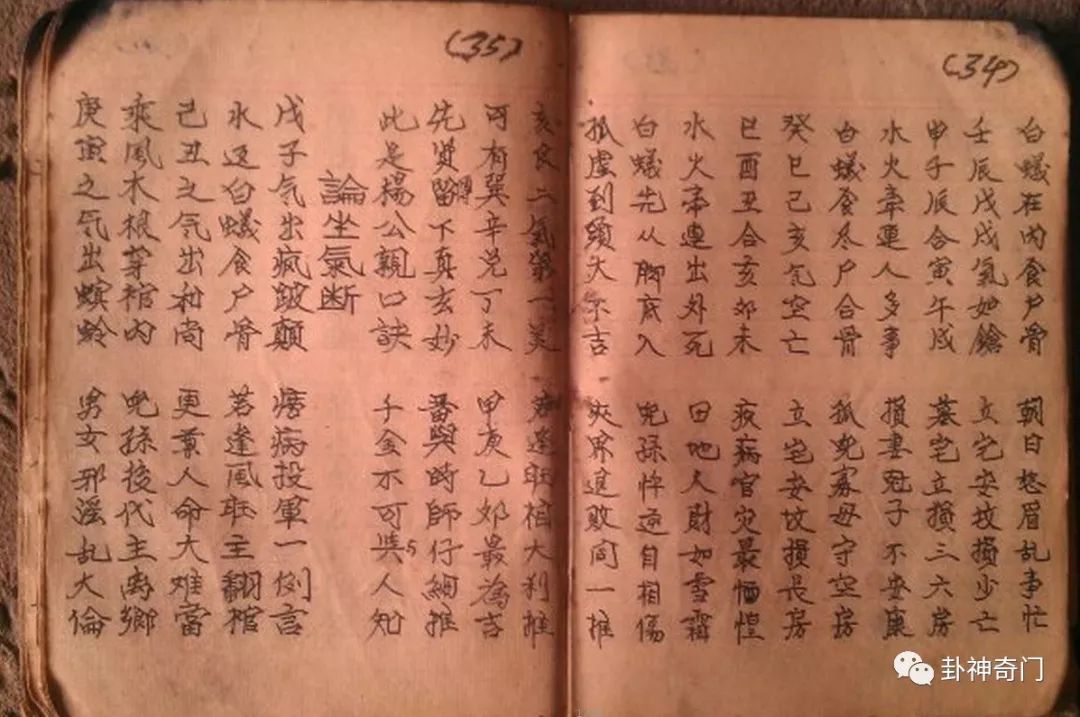 (34)
白蟻在内食尸骨 朝日愁眉乱事忙
壬辰戊戌氣如鎗 立宅安坟損少亡
甲子辰合寅午戌 墓宅立損三六房
水火牽連人多事 損妻尅子不安康
白蟻食尽尸合骨 孤児寡母守空房
癸巳己亥気空亡 立宅安坟損長房
巳酉丑合亥卯未 疾病官灾最恓惶
水火牵連出外死 田地人財如雪霜
白蟻先从脚底入 児孫忤逆自相傷
孤虚到頭大不吉 夾界退敗同一推
亥艮二氣第一美 若逢旺相大利推
可有巽辛兑丁未 甲庚乙卯最為吉
(35)
先贤留傳下真玄妙 畨與時師仔細推
此是楊公親口訣 千金不可與人知
論坐氣断
戊子气出疯跛颠 痨病投軍一例言
水返白蟻食尸骨 若逢風旺主翻棺
己丑之气出和尚 更兼人命大难當
乘風木根芽棺内 児孫後代主离鄉
庚寅之气出螟蛉 男女邪淫乱大倫
卦神奇门